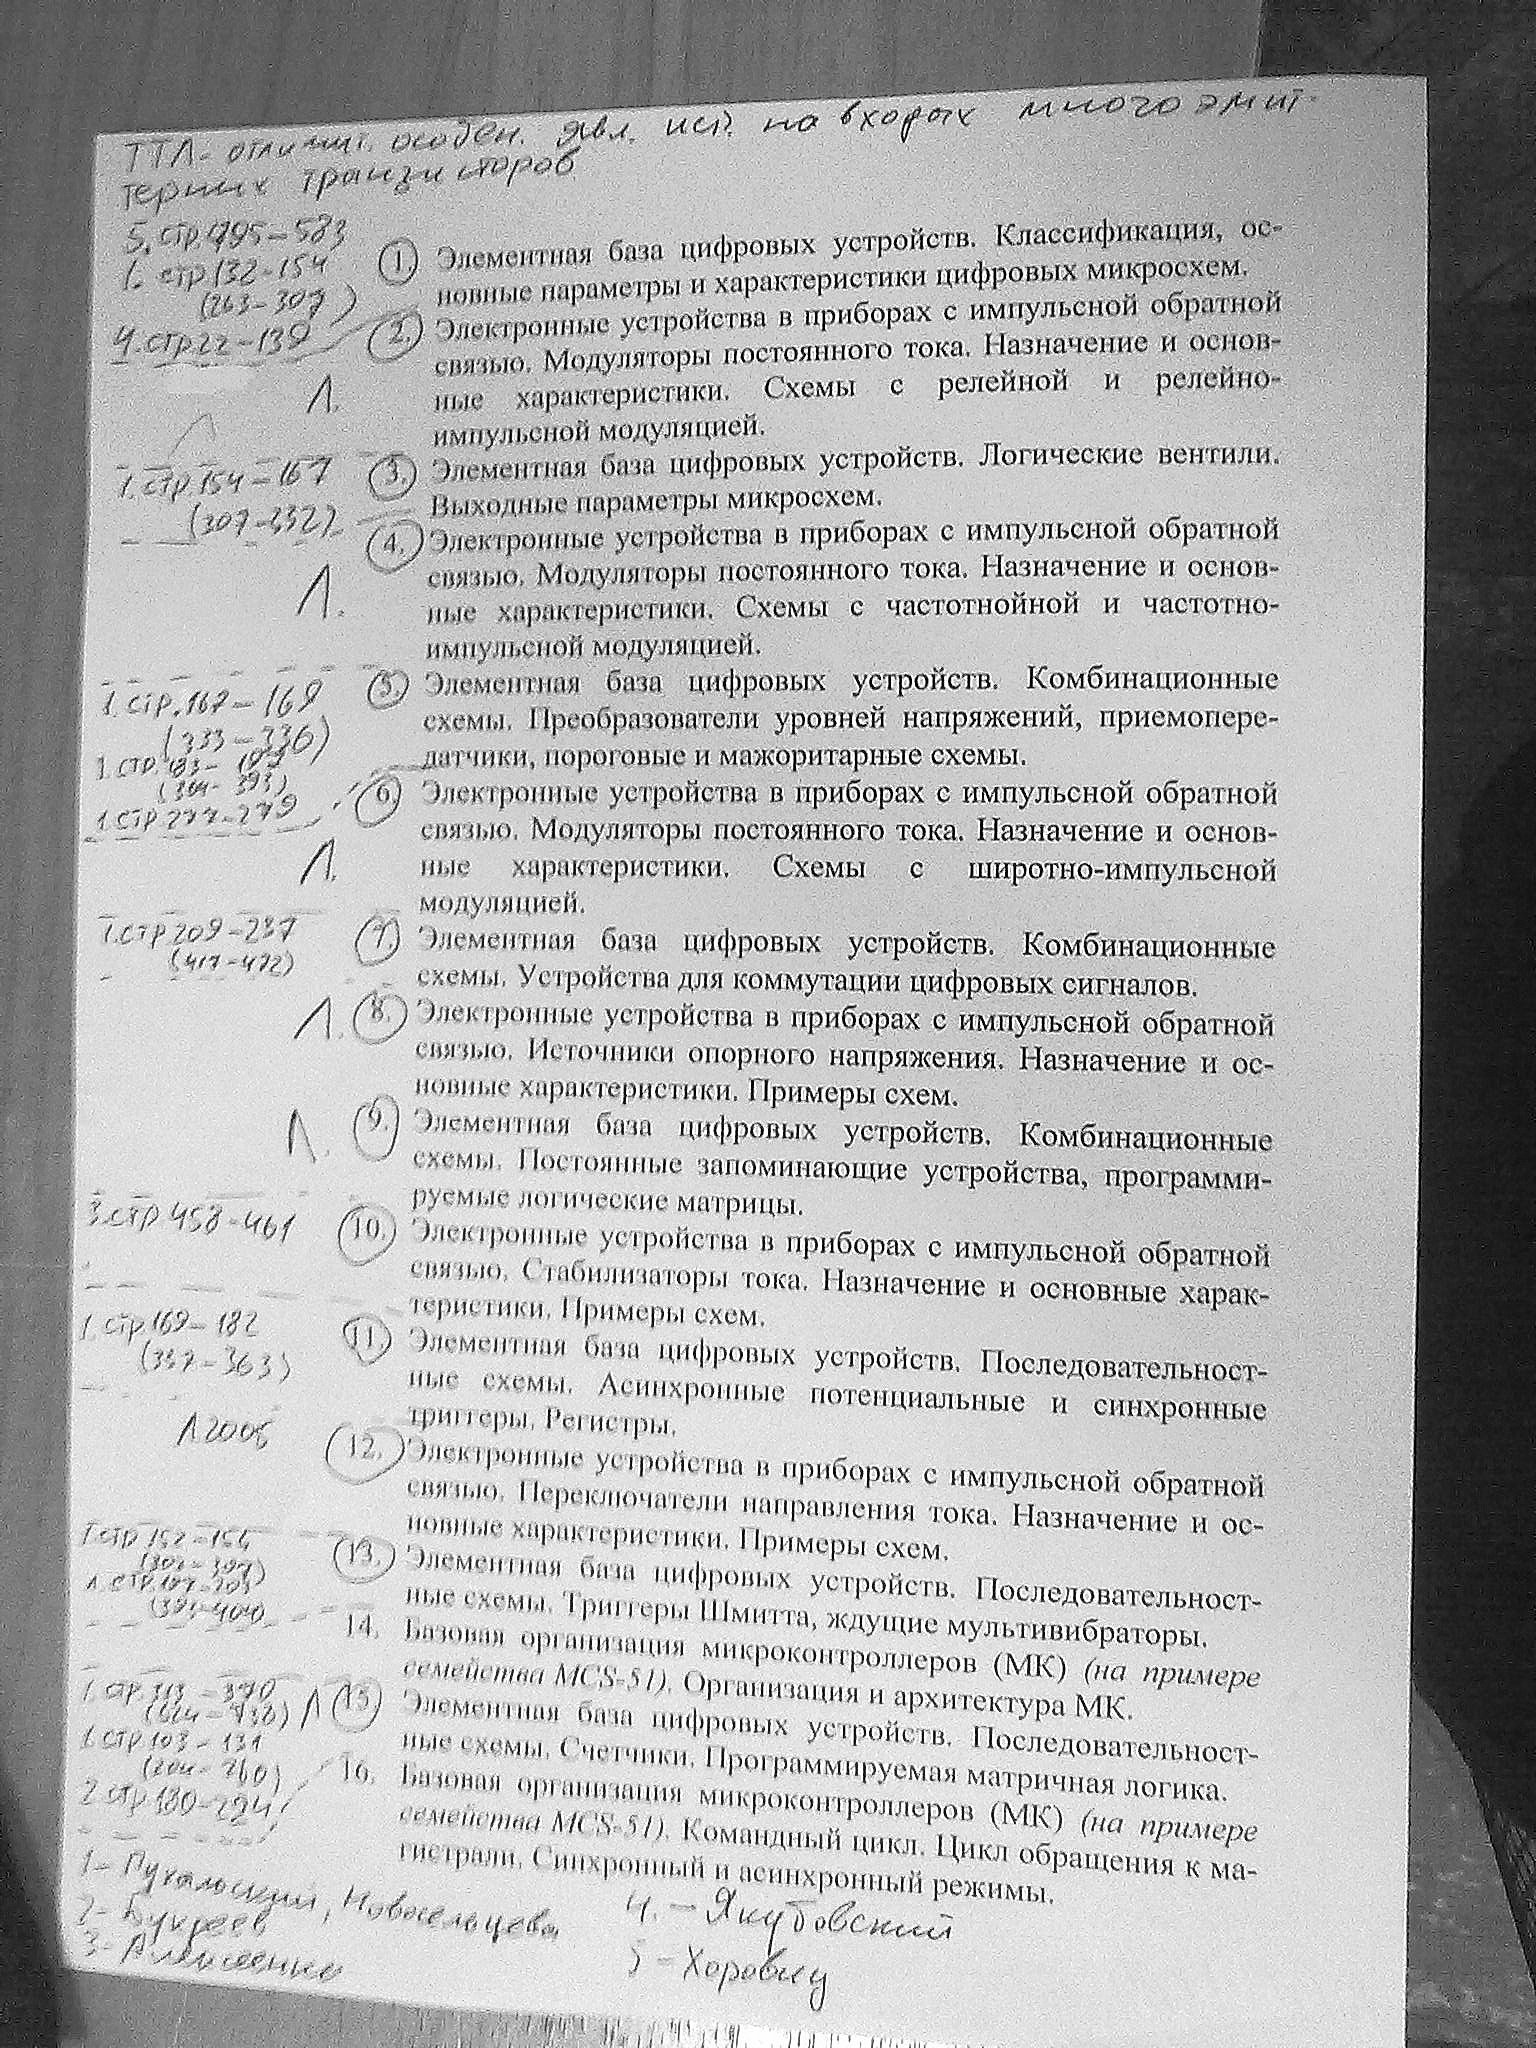 ТТЛ - отличит. особен. явл. исп. на входах многоэмит-
терных транзисторов
5. стр. 495-583
1. стр 132-154
(263-307)
4. стр 22-139
1. Элементная база цифровых устройств. Классификация, ос-
новные параметры и характеристики цифровых микросхем.
2. Электронные устройства в приборах с импульсной обратной
связью. Модуляторы постоянного тока. Назначение и основ-
ные характеристики. Схемы с релейной и релейно-
импульсной модуляцией.
Л.
1. стр. 154-167
(307-332)
3. Элементная база цифровых устройств. Логические вентили.
Выходные параметры микросхем.
4. Электронные устройства в приборах с импульсной обратной
связью. Модуляторы постоянного тока. Назначение и основ-
ные характеристики. Схемы с частотнойной и частотно-
импульсной модуляцией.
Л.
1. стр. 167-169
(333-336)
1. стр. 183-197
(364-393)
1. стр 277-279
5. Элементная база цифровых устройств. Комбинационные
схемы. Преобразователи уровней напряжений, приемопере-
датчики, пороговые и мажоритарные схемы.
6. Электронные устройства в приборах с импульсной обратной
связью. Модуляторы постоянного тока. Назначение и основ-
ные характеристики. Схемы с широтно-импульсной
модуляцией.
Л.
1. стр 209-237
(417-472)
7. Элементная база цифровых устройств. Комбинационные
схемы. Устройства для коммутации цифровых сигналов.
Л. 8. Электронные устройства в приборах с импульсной обратной
связью. Источники опорного напряжения. Назначение и ос-
новные характеристики. Примеры схем.
Л. 9. Элементная база цифровых устройств. Комбинационные
схемы. Постоянные запоминающие устройства, программи-
руемые логические матрицы.
3. стр 458-461
10. Электронные устройства в приборах с импульсной обратной
связью. Стабилизаторы тока. Назначение и основные харак-
теристики. Примеры схем.
1. стр. 169-182
(337-363)
11. Элементная база цифровых устройств. Последовательност-
ные схемы. Асинхронные потенциальные и синхронные
триггеры. Регистры.
Л 2005
12. Электронные устройства в приборах с импульсной обратной
связью. Переключатели направления тока. Назначение и ос-
новные характеристики. Примеры схем.
1. стр 152-154
1. стр.
13. Элементная база цифровых устройств. Последовательност-
ные схемы. Триггеры Шмитта, ждущие мультивибраторы.
14. Базовая организация микроконтроллеров (МК) (на примере
семейства MCS-51). Организация и архитектура МК.
1. стр 313-370
(624-738) Л
1. стр 103-131
(204-260)
2. стр 180-224
15. Элементная база цифровых устройств. Последовательност-
ные схемы. Счетчики. Программируемая матричная логика.
16. Базовая организация микроконтроллеров (МК) (на примере
семейства MCS-51). Командный цикл. Цикл обращения к ма-
гистрали. Синхронный и асинхронный режимы.
1- Пухальский, Новосельцева
2- Букреев
3- Алексенко
4. - Якубовский
5 - Хоровиц